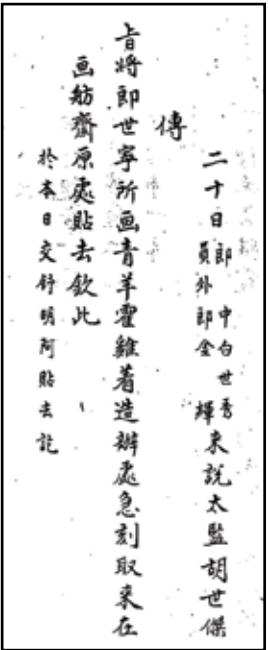 二十日郎中白世秀員外郎金輝來說太監胡世傑
傳
旨將郎世寧所画青羊霍雞着造辦處急刻取來在
画舫齋原處貼去欽此
於本日交舒明阿貼去訖